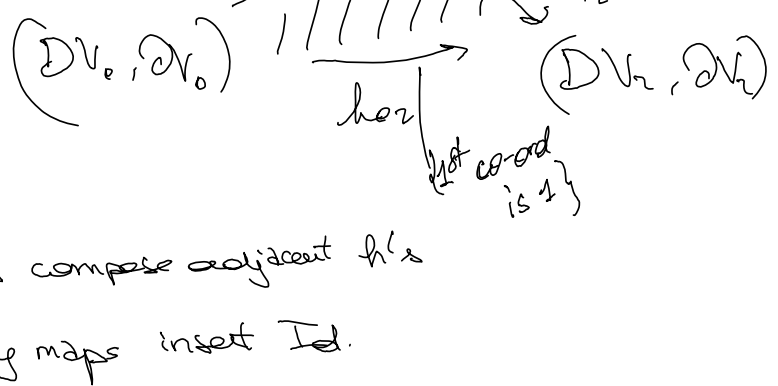 (DV₀, ∂V₀) → (DV₂, ∂V₂)
h₀₂ | {1st co-ord
is 1}
compose adjacent h's
maps insert Id.